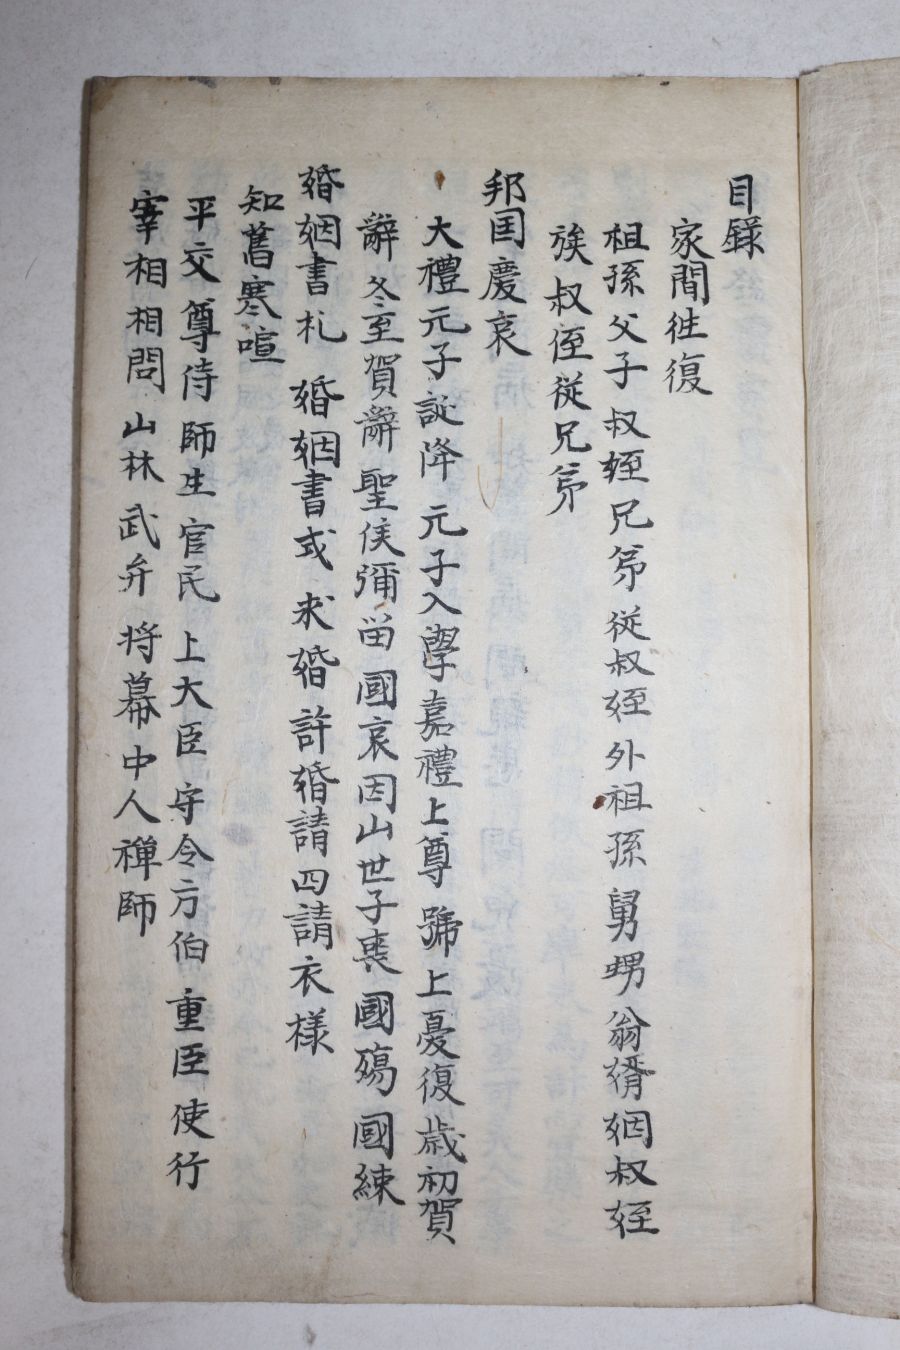 目錄
家間徃復
祖孫父子叔姪兄苐從叔姪外祖孫舅甥翁婿姻叔姪
族叔侄從兄苐
邦国慶哀
大禮元子誕降元子入學嘉禮上尊號上憂復歲初賀
辭冬至賀辭聖侯彌畄國哀因山世子喪國殤國練
婚姻書札 婚姻書式求婚許婚請四請衣樣
知舊寒喧
平交尊侍師生官民上大臣守令方伯重臣使行
宰相相問山林武弁將幕中人禪師